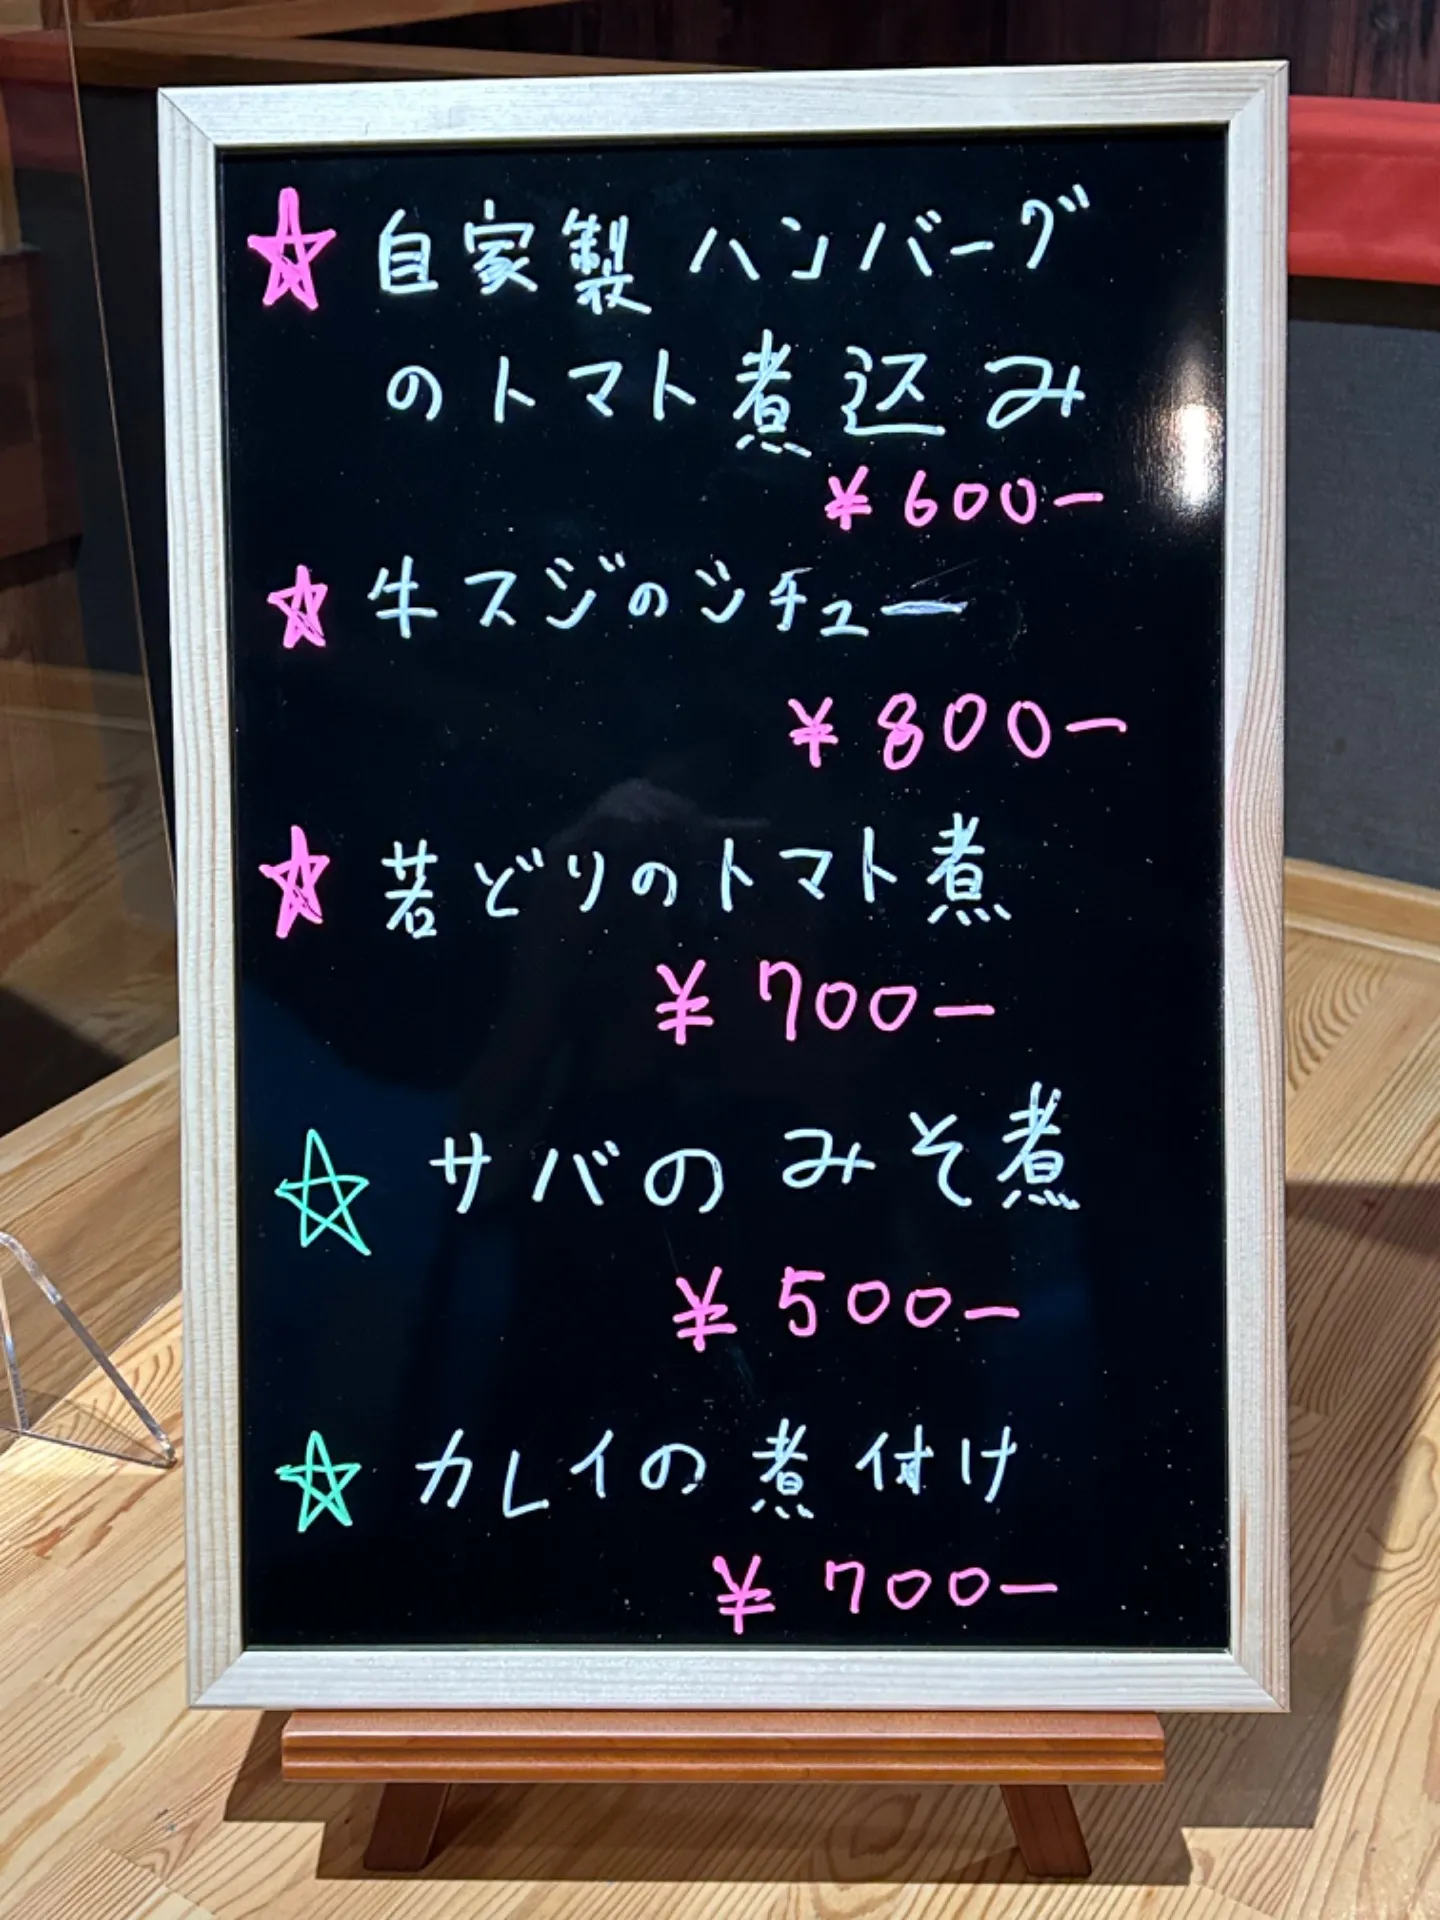 ☆ 自家製ハンバーグ
のトマト煮込み
¥600ー
☆ 牛スジのシチュー
¥800ー
☆ 若どりのトマト煮
¥700ー
☆ サバのみそ煮
¥500ー
☆ カレイの煮付け
¥700ー